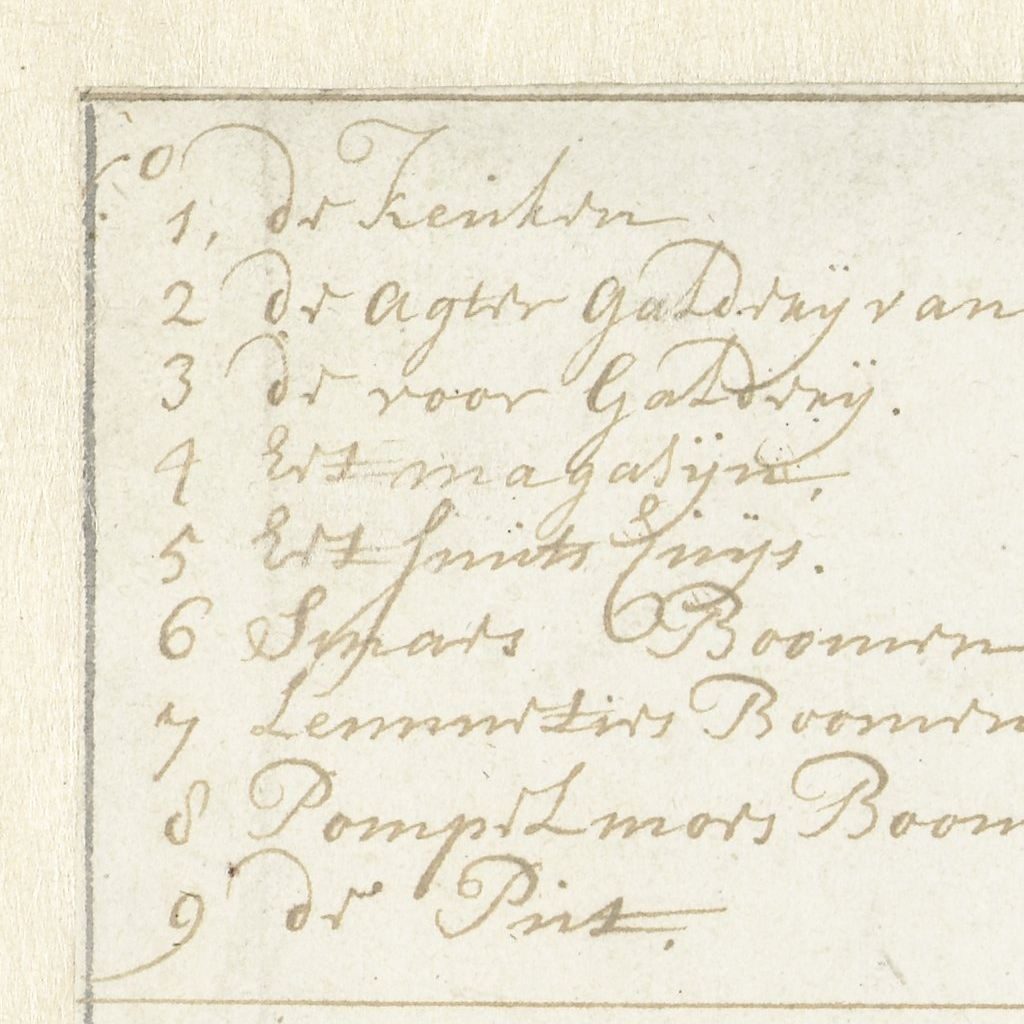 No
1, de Keuken
2 de agter galderÿ van
3 de voor Galderÿ.
4 het magasÿn.
5 het smits huÿs.
6 Boomen
7 Lemmeties Boomen
8 Pompelmoes Boom
9 de Put.